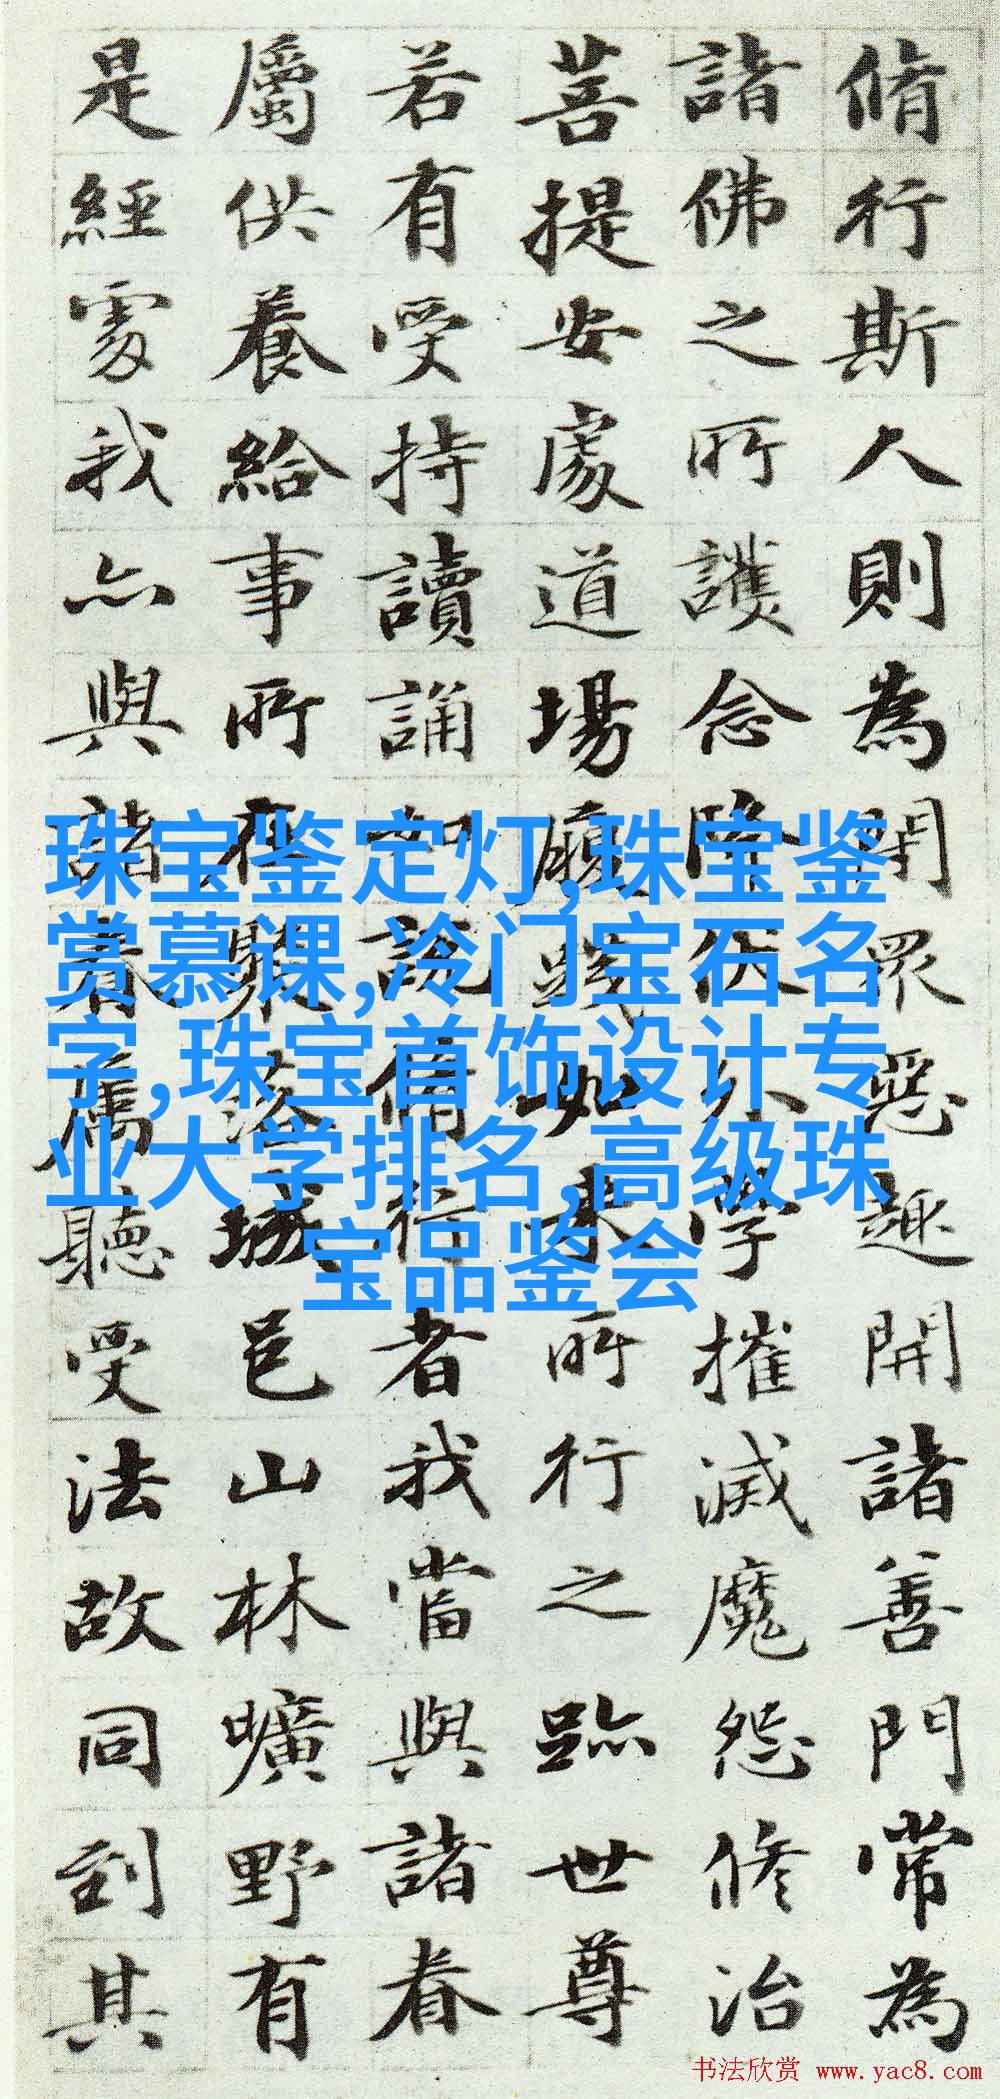 脩行斯人則為閇眾惡趣開諸善門常為
諸佛之所護念降伏外學摧滅魔怨修治
菩提安處道場履踐如來所行之跡世尊
若有受持讀誦如說脩行者我當與諸眷
屬供養給事所在聚落城邑山林曠野有
是經處我亦與諸眷屬聽受法故同到其
珠宝鉴定灯,珠宝鉴
赏慕课,冷门宝石名
字,珠宝首饰设计专
业大学排名,高级珠
宝品鉴会
书法欣赏 www.yac8.com